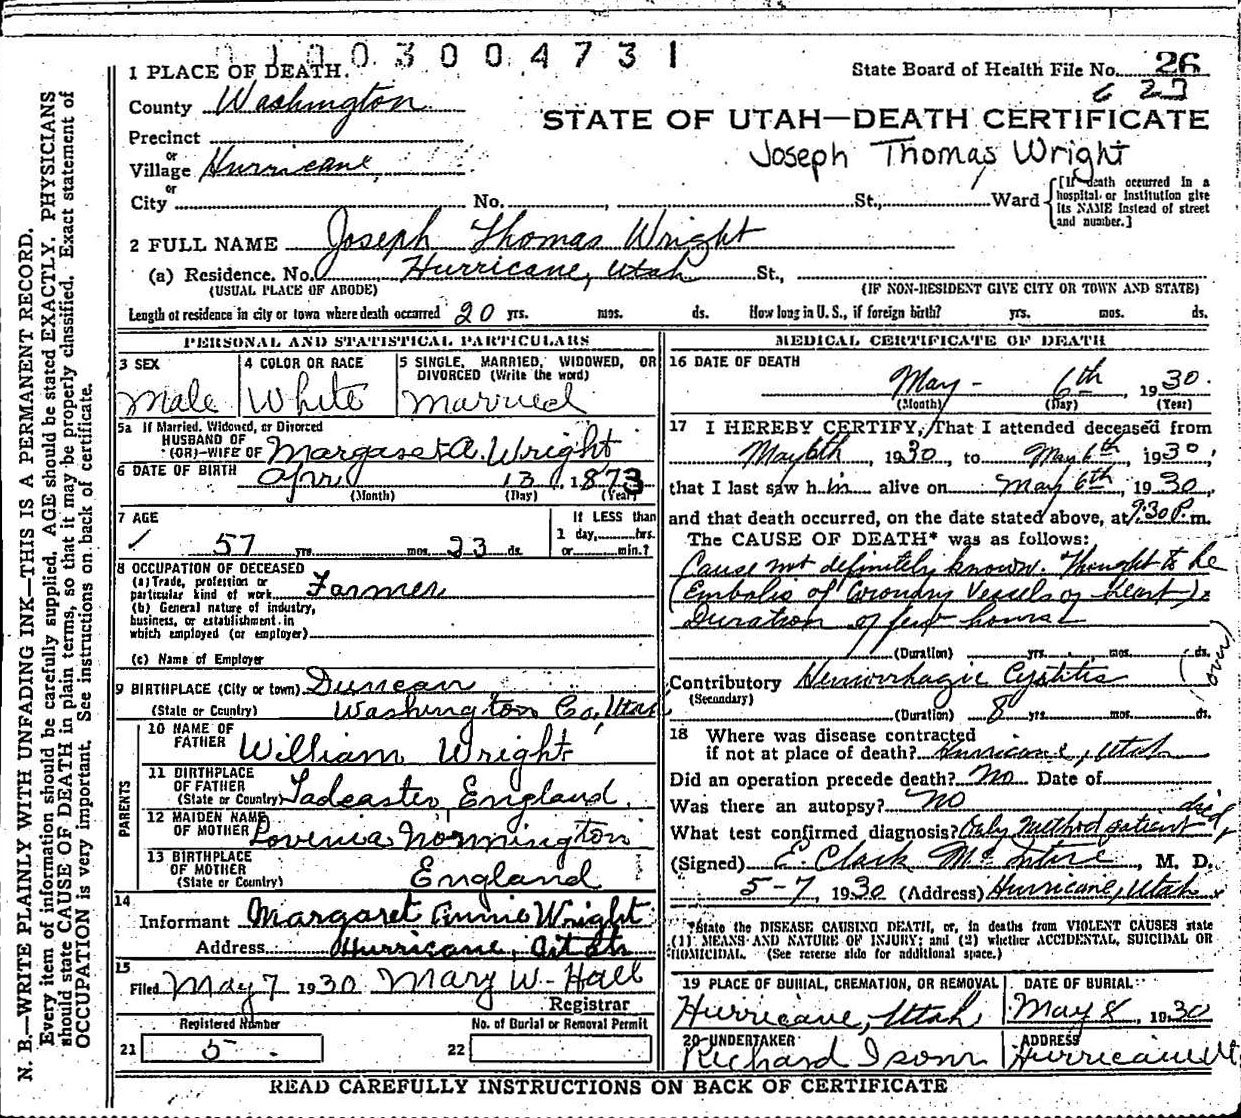 01003004731
1 PLACE OF DEATH.
State Board of Health File No. 26
County Washington
STATE OF UTAH—DEATH CERTIFICATE
Precinct
or
Village Hurricane,
Joseph Thomas Wright
or
City No. , St., Ward [If death occurred in a hospital or institution give its NAME instead of street and number.]
2 FULL NAME Joseph Thomas Wright
(a) Residence. No. Hurricane, Utah St.,
(USUAL PLACE OF ABODE) (IF NON-RESIDENT GIVE CITY OR TOWN AND STATE)
Length of residence in city or town where death occurred 20 yrs. mos. ds. How long in U. S., if foreign birth? yrs. mos. ds.
PERSONAL AND STATISTICAL PARTICULARS
3 SEX
Male
4 COLOR OR RACE
White
5 SINGLE, MARRIED, WIDOWED, OR
DIVORCED (Write the word)
Married
5a If Married, Widowed, or Divorced
HUSBAND OF
(OR) WIFE OF Margaret A. Wright
6 DATE OF BIRTH Apr. 13, 1873
(Month) (Day) (Year)
7 AGE
57 yrs. mos. 23 ds.
If LESS than
1 day, hrs.
or min.?
8 OCCUPATION OF DECEASED
(a) Trade, profession or
particular kind of work Farmer
(b) General nature of industry,
business, or establishment in
which employed (or employer)
(c) Name of Employer
9 BIRTHPLACE (City or town) Duncan
(State or Country) Washington Co, Utah
PARENTS
10 NAME OF
FATHER William Wright
11 BIRTHPLACE
OF FATHER
(State or Country) Tadcaster, England.
12 MAIDEN NAME
OF MOTHER Lovenia Normington
13 BIRTHPLACE
OF MOTHER
(State or Country) England
14
Informant Margaret Annie Wright
Address Hurricane, Utah
15
Filed May 7 1930 Mary W. Hall
Registrar
Registered Number
21 5
No. of Burial or Removal Permit
22
MEDICAL CERTIFICATE OF DEATH
16 DATE OF DEATH
May - 6th, 1930.
(Month) (Day) (Year)
17 I HEREBY CERTIFY, That I attended deceased from
May 6th, 1930, to May 6th, 1930,
that I last saw h im alive on May 6th, 1930,
and that death occurred, on the date stated above, at 9:30 P. m.
The CAUSE OF DEATH* was as follows:
Cause not definitely known. Thought to be
(Embolis of Coronary Vessels of heart)
Duration of few hours
(Duration) yrs. mos. ds.
Contributory Hemorrhagic Cystitis (over)
(Secondary)
(Duration) 8 yrs. mos. ds.
18 Where was disease contracted
if not at place of death? Hurricane, Utah
Did an operation precede death? No Date of
Was there an autopsy? No
What test confirmed diagnosis? Only method patient died,
(Signed) E. Clark McIntire, M. D.
5-7, 1930 (Address) Hurricane, Utah
*State the DISEASE CAUSING DEATH, or, in deaths from VIOLENT CAUSES state
(1) MEANS AND NATURE OF INJURY; and (2) whether ACCIDENTAL, SUICIDAL OR
HOMICIDAL. (See reverse side for additional space.)
19 PLACE OF BURIAL, CREMATION, OR REMOVAL
Hurricane, Utah,
DATE OF BURIAL
May 8, 1930
20 UNDERTAKER
Richard Isom
ADDRESS
Hurricane Ut
READ CAREFULLY INSTRUCTIONS ON BACK OF CERTIFICATE
N. B.—WRITE PLAINLY WITH UNFADING INK—THIS IS A PERMANENT RECORD.
Every item of information should be carefully supplied. AGE should be stated EXACTLY. PHYSICIANS
should state CAUSE OF DEATH in plain terms, so that it may be properly classified. Exact statement of
OCCUPATION is very important. See instructions on back of certificate.